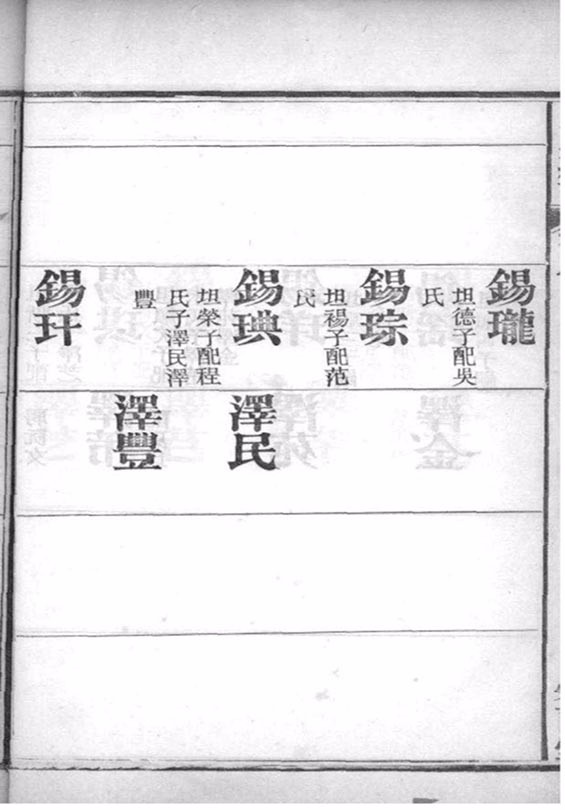 錫瓏
坦德子配吳
氏
錫琮
坦禓子配范
氏
錫琠
坦榮子配程
氏子澤民澤
豐
錫玕
澤民
澤豐